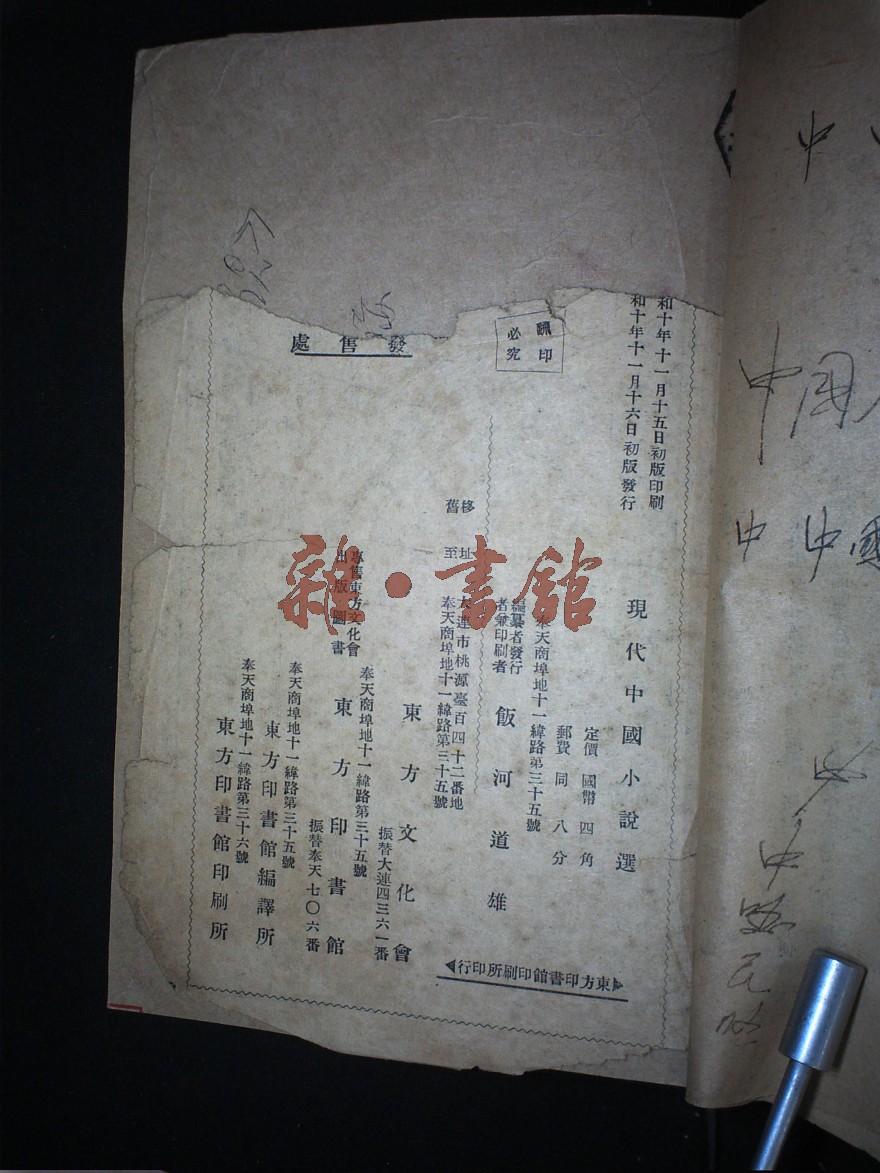 和十年十一月十五日初版印刷
和十年十一月十六日初版發行
現代中國小說選
定價 國幣 四角
郵費 同 八分
翻印
必究
奉天商埠地十一緯路第三十五號
編纂者發行
者兼印刷者
飯河道雄
東方印書館印刷所印行
移址
舊至
大連市桃源臺百四十二番地
奉天商埠地十一緯路第三十五號
發售處
東方文化會
振替大連四三六一番
專售東方文化會
出版圖書
奉天商埠地十一緯路第三十五號
東方印書館
振替奉天七〇六番
奉天商埠地十一緯路第三十五號
東方印書館編譯所
奉天商埠地十一緯路第三十六號
東方印書館印刷所
雜·書館
中
中國
中
中國
中